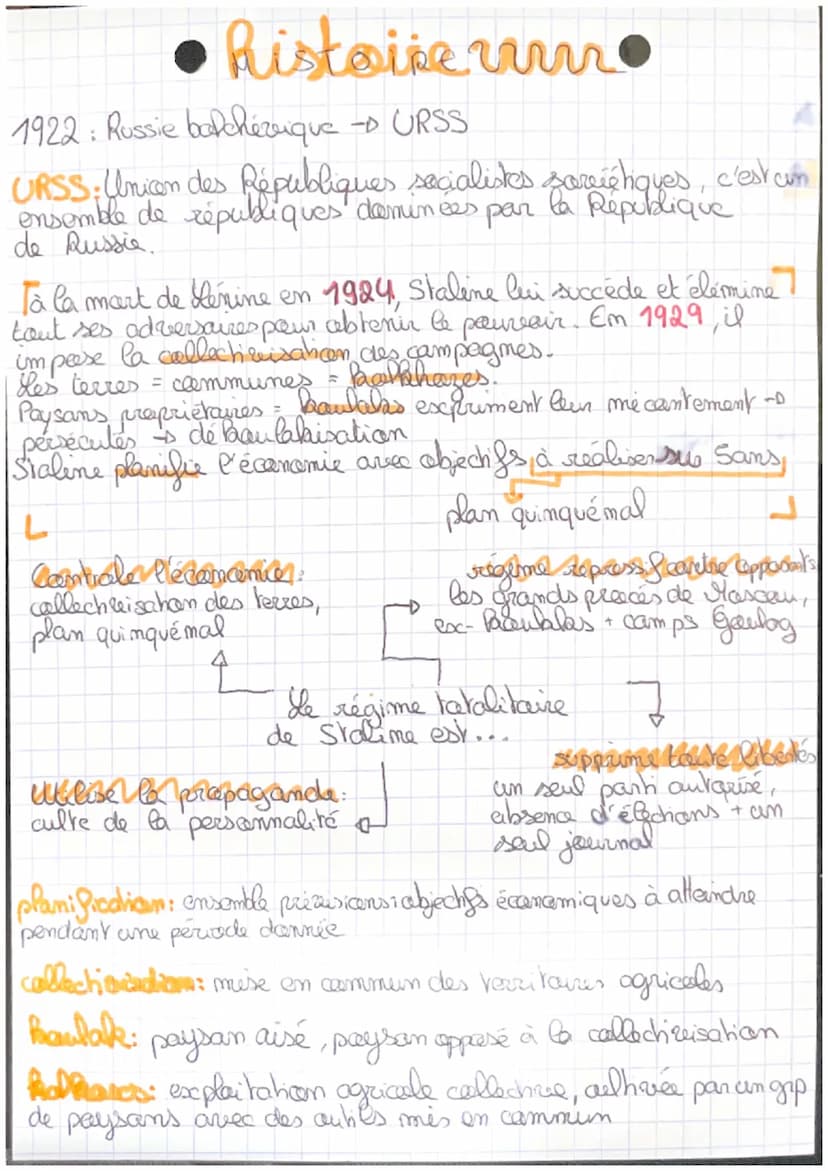 Histoire
1922 : Russie bolchévique → URSS
URSS: Union des Républiques socialistes soviétiques, c'est un
ensemble de républiques dominées par la République
de Russie.
à la mort de Lénine en 1924, Staline lui succède et élémine
tout ses adversaires pour obtenir le pouvoir. En 1929, il
impose la collectivisation des campagnes.
Les terres = communes = kolkhozes.
Paysans propriétaires = koulaks expriment leur mécontement →
persécutés → dékoulakisation
Staline planifie l'économie avec objectifs à réaliser sur 5ans
plan quinquénnal
Controle l'économie:
collectivisation des terres,
plan quinquénnal
régime répressif contre opposants
les grands procès de Moscou,
ex-koulaks + camps Goulag
Le régime totalitaire
de Staline est...
Utilise la propagande:
culte de la personnalité
supprime toute libertés
un seul parti autorisé,
absence d'élections + un
seul journal
planification: ensemble prévisions: objectifs économiques à atteindre
pendant une période donnée
collectivisation: mise en commun des territoires agricoles
koulak: paysan aisé, paysan opposé à la collectivisation
kolkhozes: exploitation agricole collective, cultivée par un grp
de paysans avec des outils mis en commun